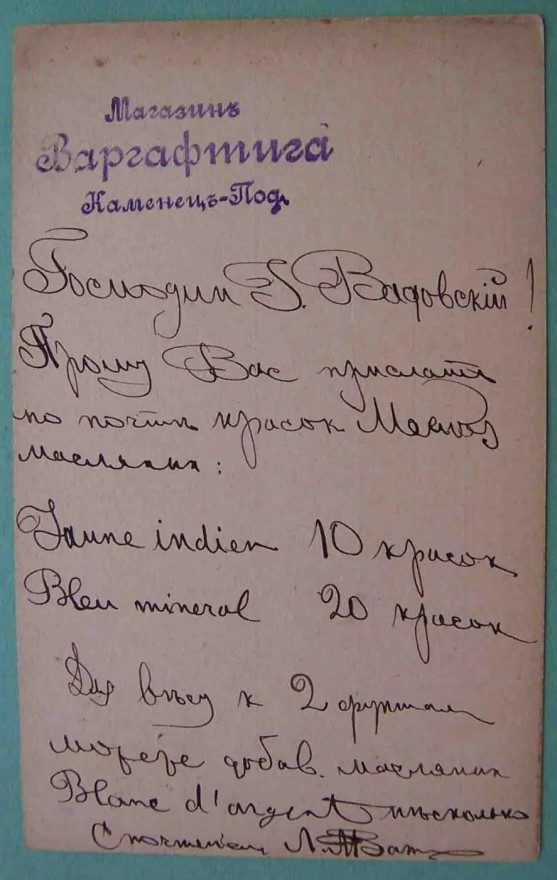 Магазинъ
Варгафтига
Каменецъ-Под.
Господин Г. Вадовскій!
Прошу Вас прислать
по почтѣ красок
масляних:
Jaune indien 10 красок
Bleu mineral 20 красок
Для вѣсу к 2 фунтам
можете добав. масляних
Blanc d'argent нѣсколько
С почтением